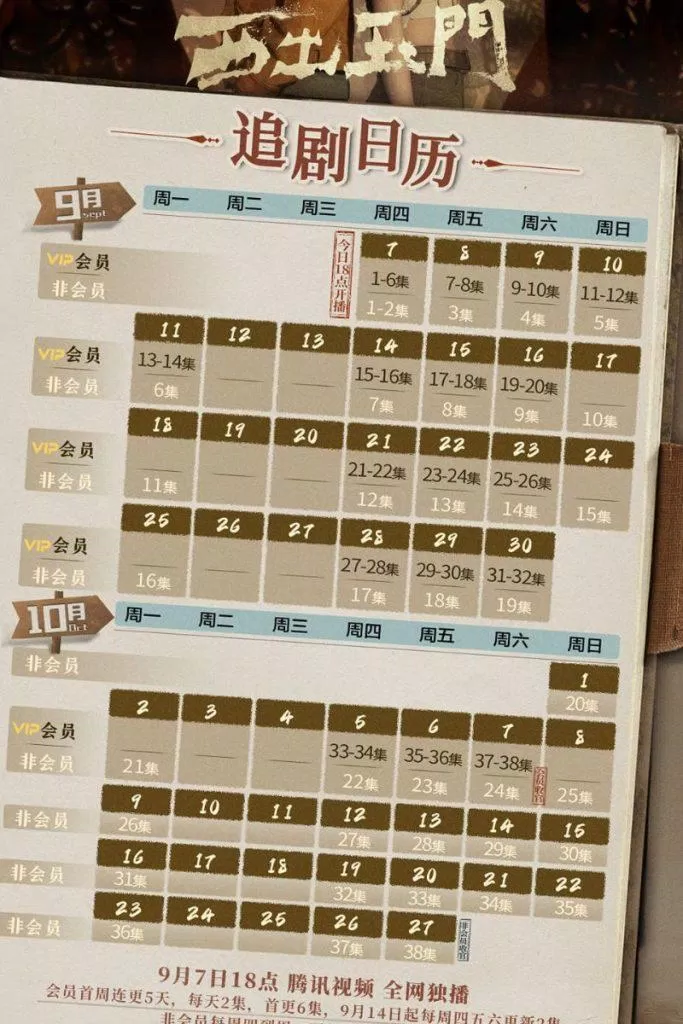 西出玉門
追剧日历
9月
Sept
周一 周二 周三 周四 周五 周六 周日
今日18点开播
7 8 9 10
VIP会员 1-6集 7-8集 9-10集 11-12集
非会员 1-2集 3集 4集 5集
11 12 13 14 15 16 17
VIP会员 13-14集 15-16集 17-18集 19-20集
非会员 6集 7集 8集 9集 10集
18 19 20 21 22 23 24
VIP会员 21-22集 23-24集 25-26集
非会员 11集 12集 13集 14集 15集
25 26 27 28 29 30
VIP会员 27-28集 29-30集 31-32集
非会员 16集 17集 18集 19集
10月
Oct
周一 周二 周三 周四 周五 周六 周日
1
非会员 20集
2 3 4 5 6 7 8
VIP会员 33-34集 35-36集 37-38集
会员收官
非会员 21集 22集 23集 24集 25集
9 10 11 12 13 14 15
非会员 26集 27集 28集 29集 30集
16 17 18 19 20 21 22
非会员 31集 32集 33集 34集 35集
23 24 25 26 27
非会员 36集 37集 38集
非会员收官
9月7日18点 腾讯视频 全网独播
会员首周连更5天，每天2集，首更6集，9月14日起每周四五六更新2集
非会员每周四到周